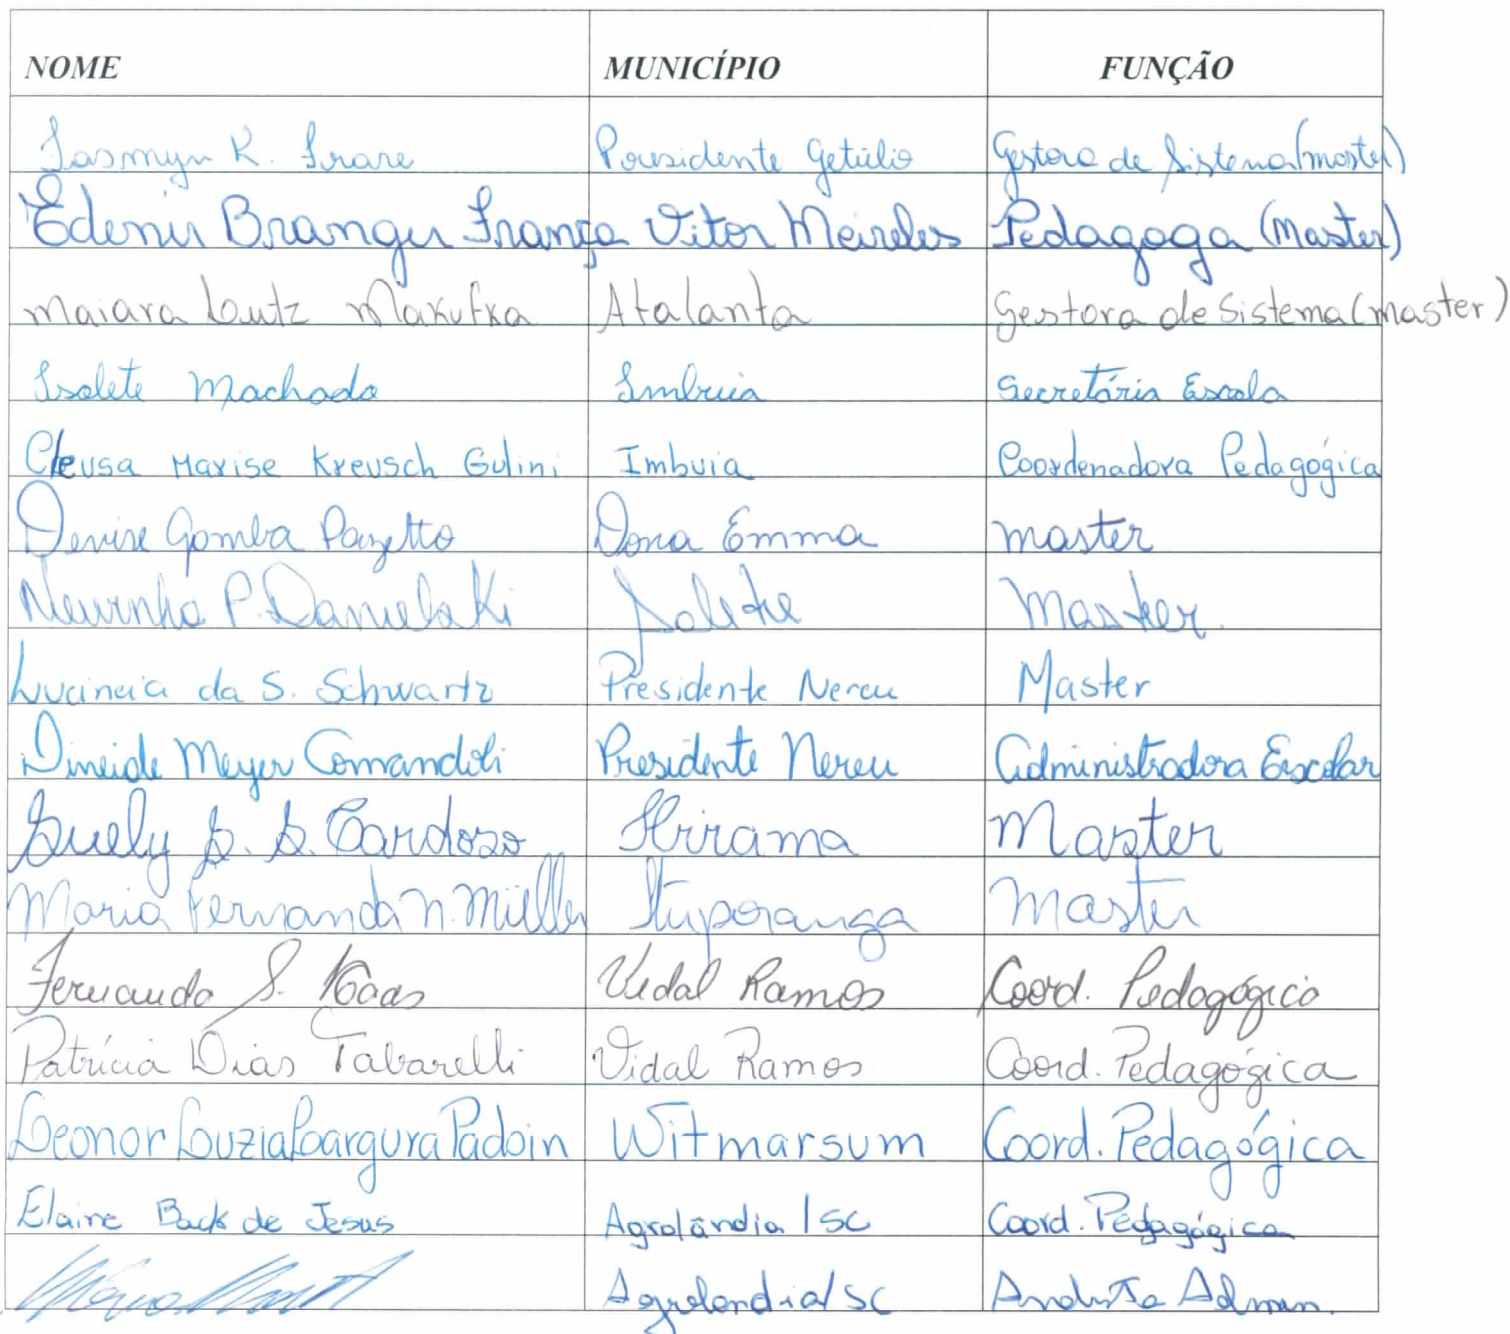 NOME MUNICÍPIO FUNÇÃO
Iasmyn K. Irare Presidente Getúlio Gestora de Sistema (master)
Edenir Branger França Vitor Meireles Pedagoga (Master)
Maiara Lutz Makufka Atalanta Gestora de Sistema (master)
Isolete Machado Imbuia Secretária Escola
Cleusa Marise Kreusch Gulini Imbuia Coordenadora Pedagógica
Denise Gomba Pazetto Dona Emma master
Neurinha P. Danielski Salete Master.
Lucineia da S. Schwartz Presidente Nereu Master
Dineide Meyer Comandoli Presidente Nereu Administradora Escolar
Suely S. S. Cardoso Ibirama Master
Maria Fernanda N. Müller Ituporanga Master
Fernando S. Haas Vidal Ramos Coord. Pedagógico
Patrícia Dias Tabarelli Vidal Ramos Coord. Pedagógica
Leonor Luzia Padoin Witmarsum Coord. Pedagógica
Elaine Back de Jesus Agrolândia / SC Coord. Pedagógica
Agrolandia/SC Analista Admin.